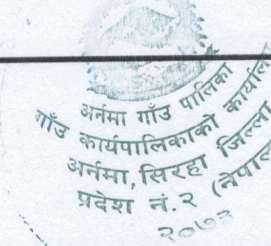 अर्नमा गाउँ पालिका
गाउँ कार्यपालिकाको कार्यालय
अर्नमा, सिरहा जिल्ला
प्रदेश नं. २ (नेपाल
२०७३